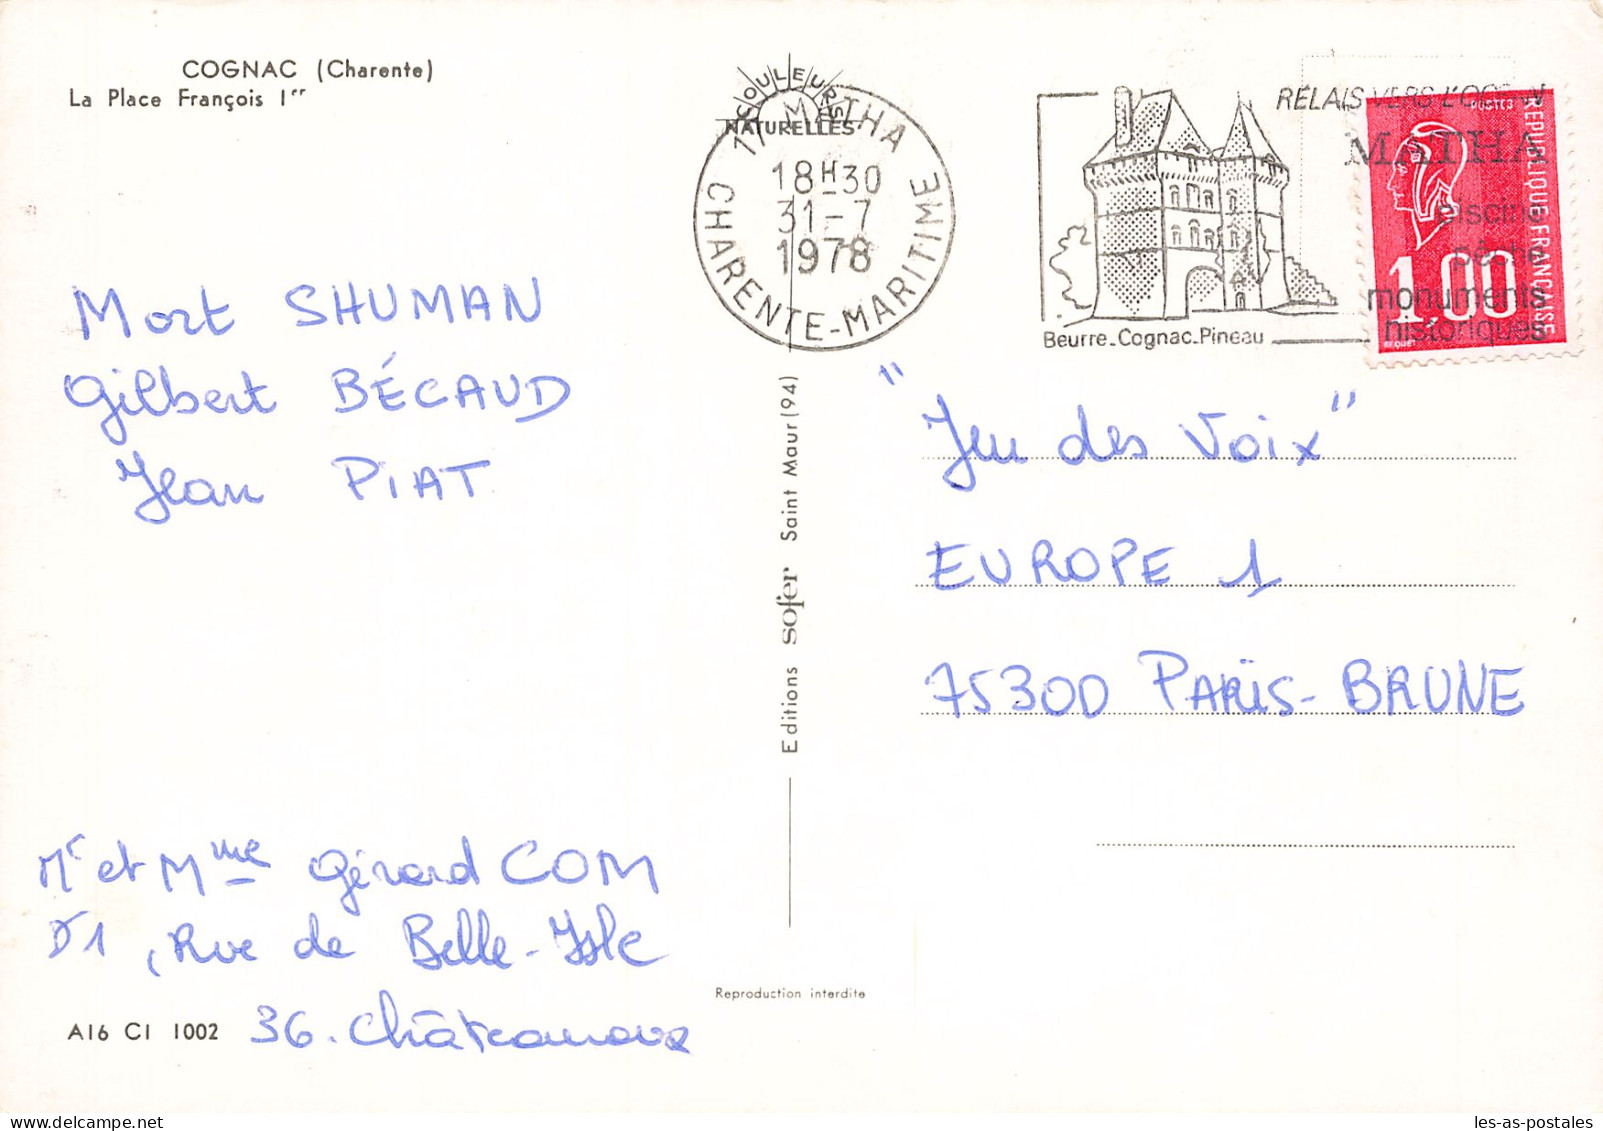 COGNAC (Charente)
La Place François Ier
COULEURS
NATURELLES
17 MATHA
18H30
31-7
1978
CHARENTE-MARITIME
RELAIS VERS L'OCEAN
MATHA
piscine
pêche
monuments
historiques
Beurre_Cognac_Pineau
POSTES
REPUBLIQUE FRANCAISE
1,00
BEQUET
Mort SHUMAN
Gilbert BÉCAUD
Jean PIAT
"Jeu des Voix"
EUROPE 1
75300 PARIS-BRUNE
Editions sofer Saint Maur (94)
Mr et Mme Gérard COM
, Rue de Belle-Isle
36. Châteauroux
Reproduction interdite
A16 CI 1002
les-as-postales